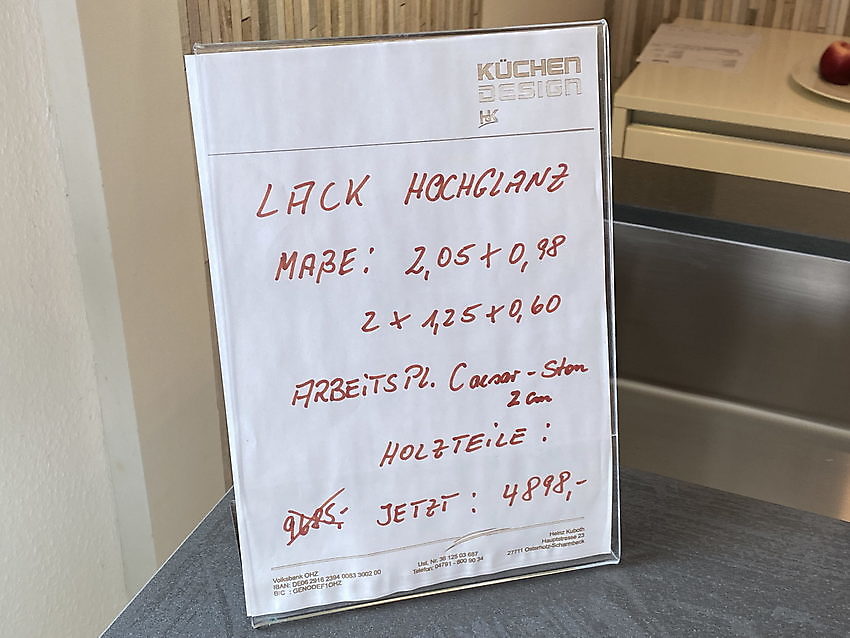 KÜCHEN
DESIGN
HK
LACK HOCHGLANZ
MAßE: 2,05 x 0,98
2 x 1,25 x 0,60
ARBEITSPL. Caesar-Ston
2 cm
HOLZTEILE:
9685,- JETZT: 4898,-
Volksbank OHZ
IBAN: DE06 2916 2394 0083 3002 00
BIC : GENODEF1OHZ
Ust. Nr. 36 125 03 687
Telefon: 04791 - 800 90 34
Heinz Kuboth
Hauptstrasse 23
27711 Osterholz-Scharmbeck